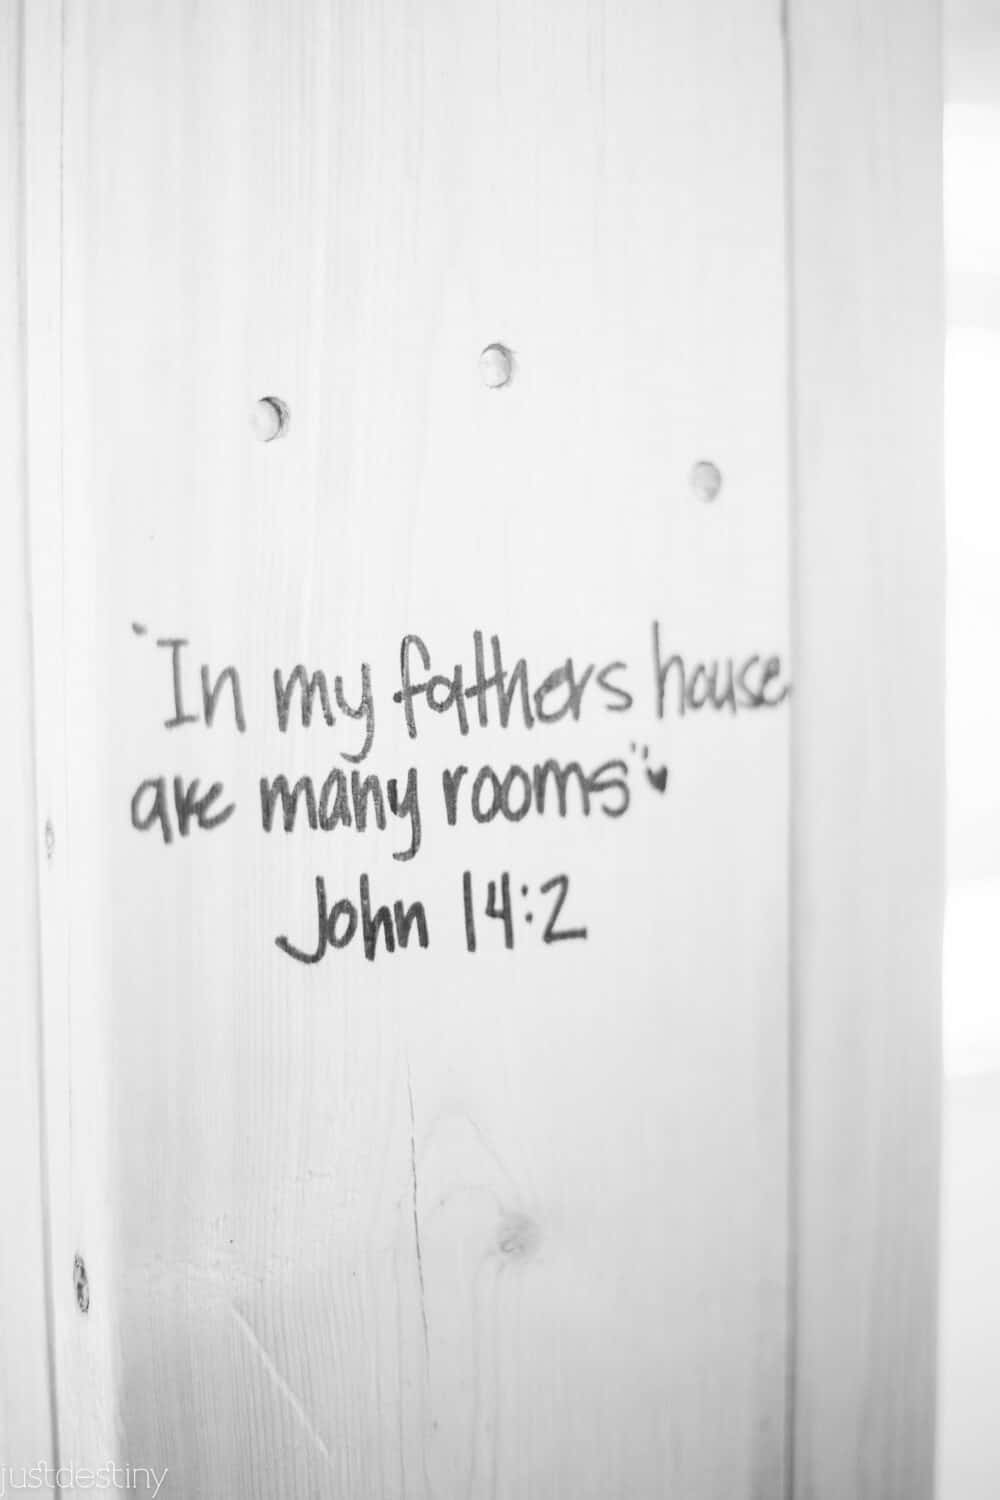 "In my fathers house
are many rooms" ♥
John 14:2
justdestiny